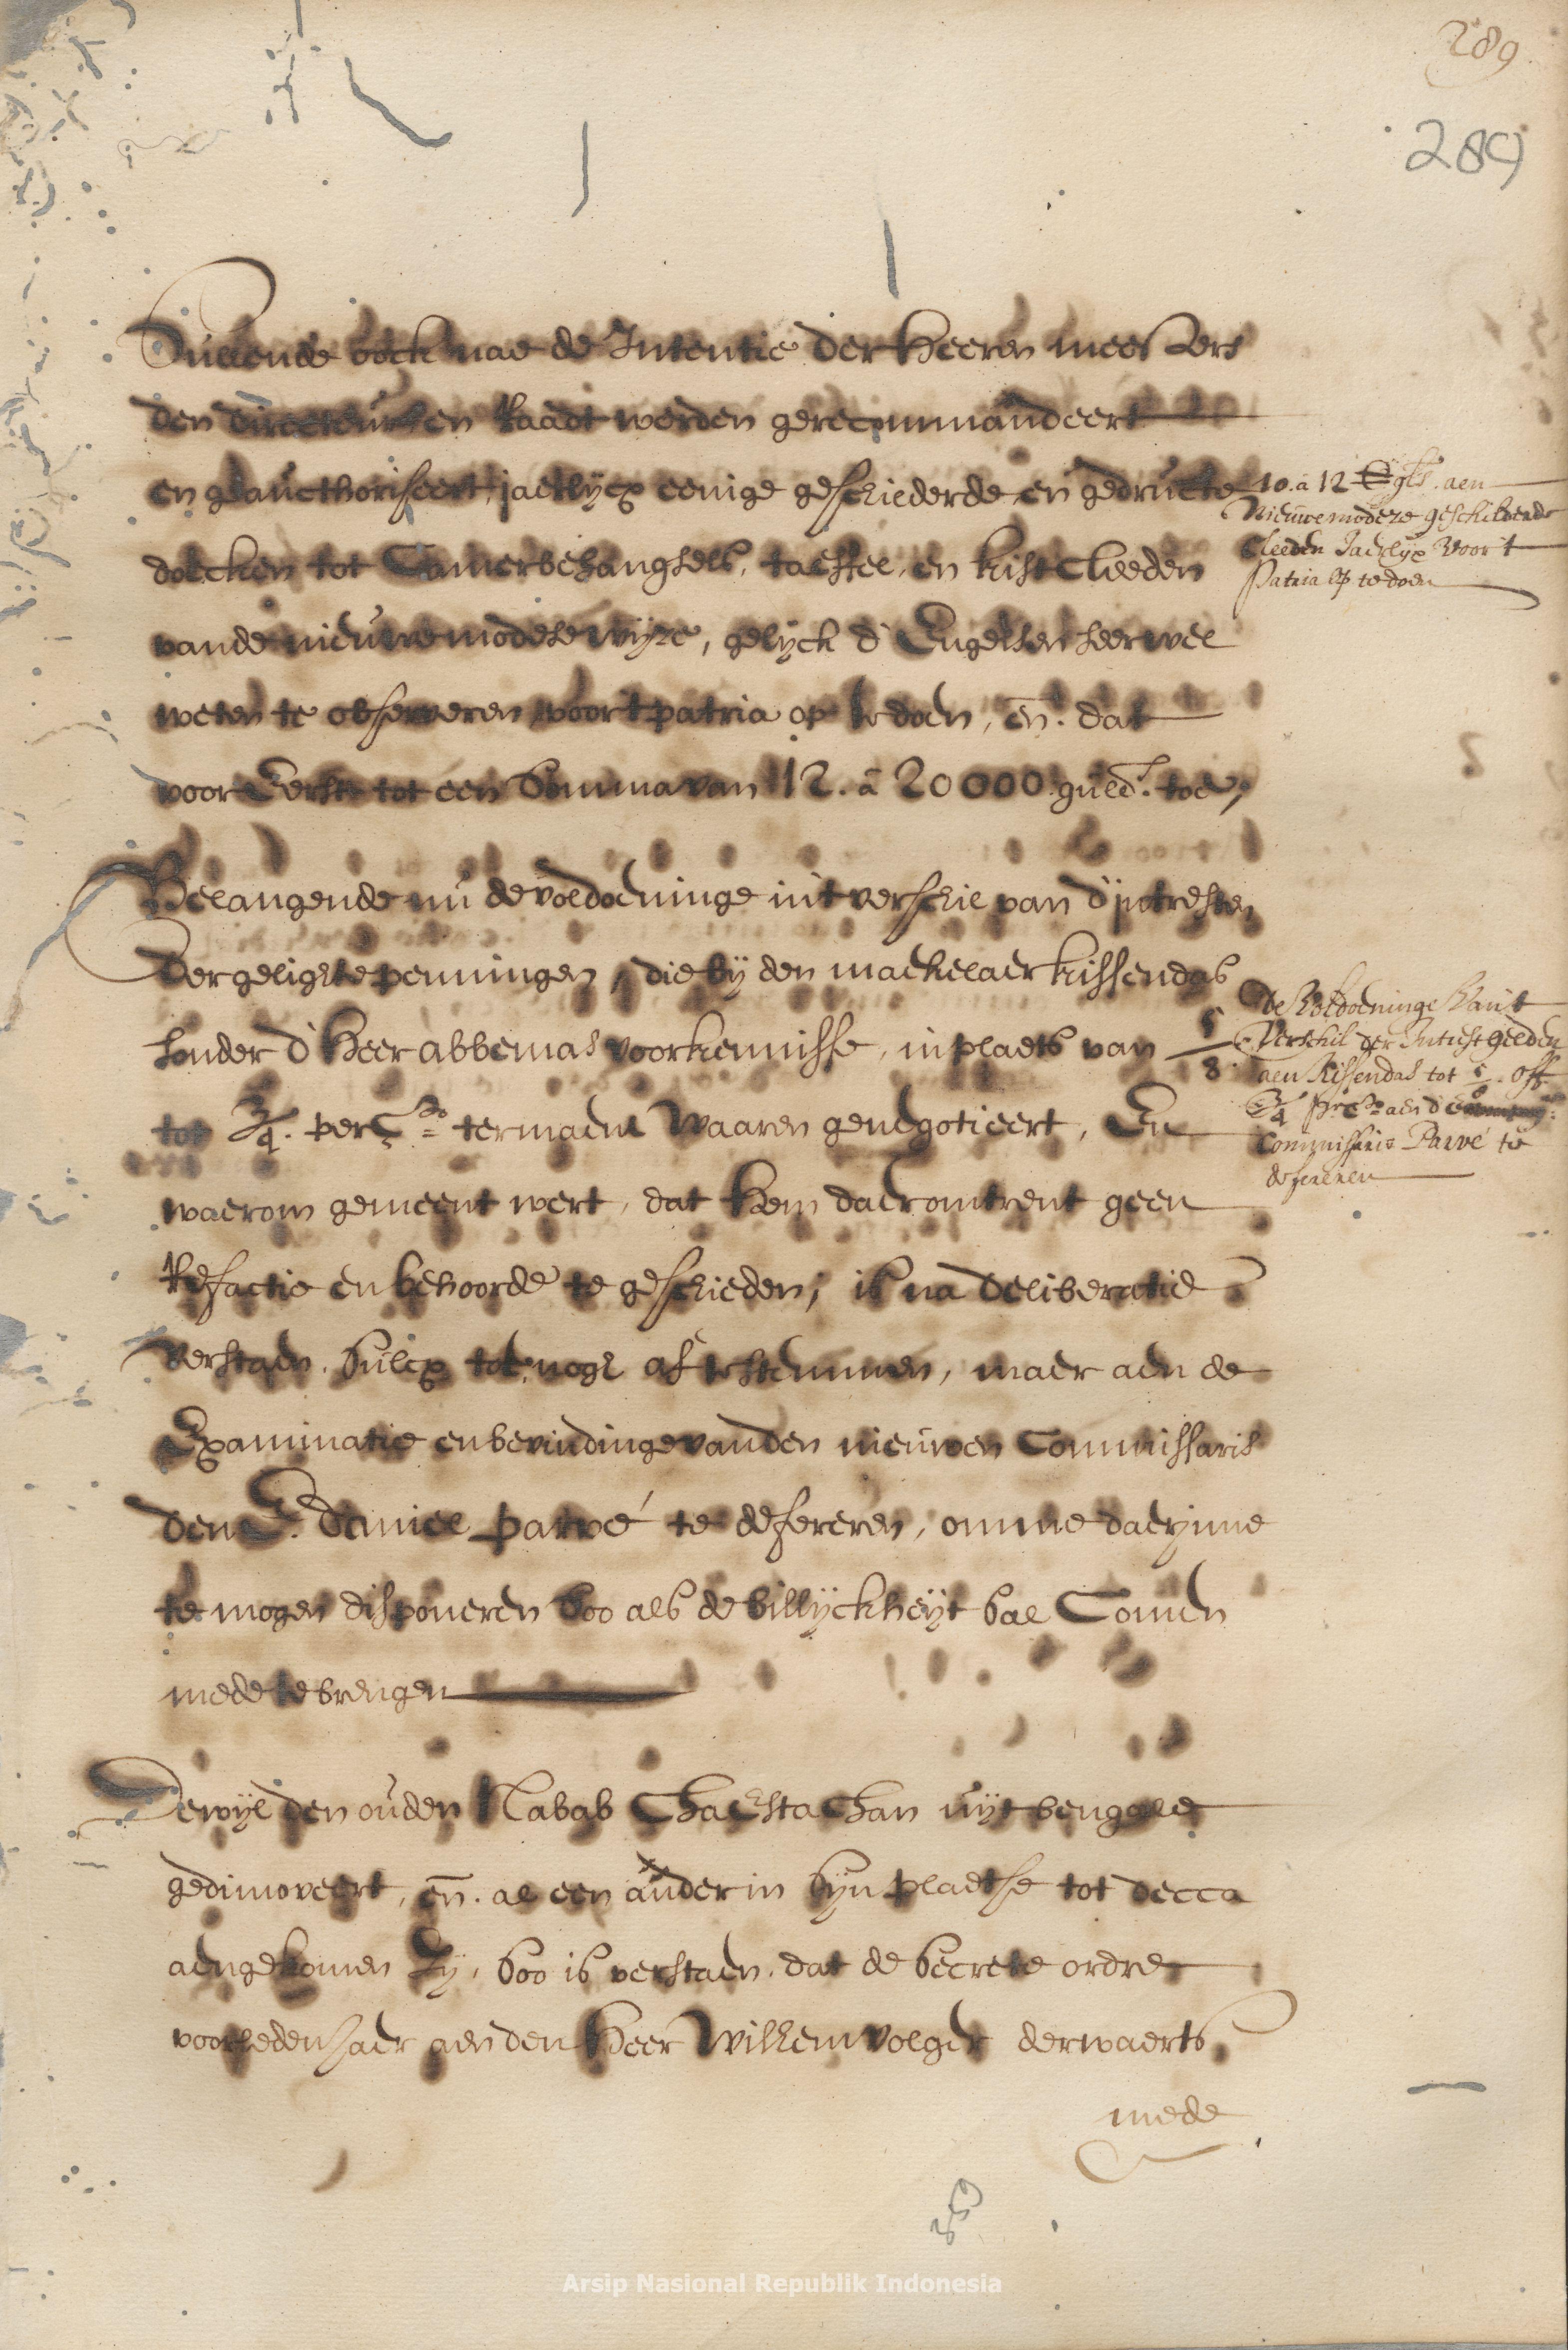 289
289
Sullende oock nae de Intentie der Heeren meesters
den directeur en Raadt werden gerecommandeert
en geaucthoriseert, jaerlijcx eenige geschilderde en gedructe
doecken tot Camerbehanghsels, taeffel, en kistcleeden
vande nieuwe modese wijze, gelijck d' Engelsen seer wel
weten te observeren, voor 't patria op te doen, en. dat
voor Eerst tot een Somma van 12. â 20000 guld.s toe,
10. a 12 gls. aen
Nieuwe modeze geschilderde
Cleeden Jaerlijx voor 't
Patria op te doen
Belangende nu de voldoeninge in't verschil van d' intresten
der geligte penningen, die bij den maekelaer kissendas
sonder d' Heer abbemas voorkennisse, in plaets van 5/8
tot 3/4. per Cto. ter maent Waaren genegotieert, En
waerom gemeent wert, dat hem daeromtrent geen
Refactie en behoorde te geschieden, is na deliberatie
Verstaen. Sulcx tot nogh af te stemmen, maer aen de
Examinatie en bevindinge van den nieuwen Commissaris
den E. Daniel parvé te defereren, omme daerinne
te mogen disponeren Soo als de billijckheijt sal Comen
mede te brengen
de Voldoeninge van 't
Verschil der Intrest gelden
aen Kissendas tot 5/8 off
3/4 pr. Cto aen d' E
Commissaris Parvé te
defereren
Dewijl den ouden Nabab Chaesta Chan uijt bengale
gedimoveert, en. al een ander in Sijn plaetse tot decca
aengekomen Zij, Soo is verstaen. dat de Secrete ordre
voorleden Jaer aen den Heer Willem Volger derwaerts
mede
Arsip Nasional Republik Indonesia